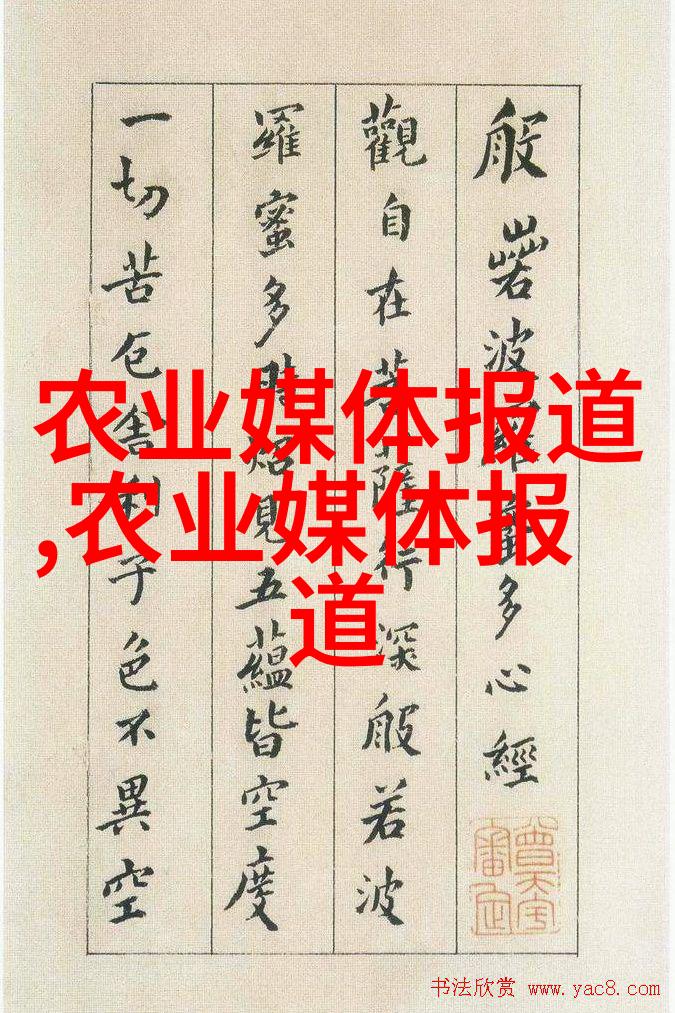 般若波羅蜜多心經
觀自在菩薩行深般若波
羅蜜多時照見五蘊皆空度
一切苦厄舍利子色不異空
农业媒体报道
,农业媒体报
道
书法欣赏 www.yac8.com